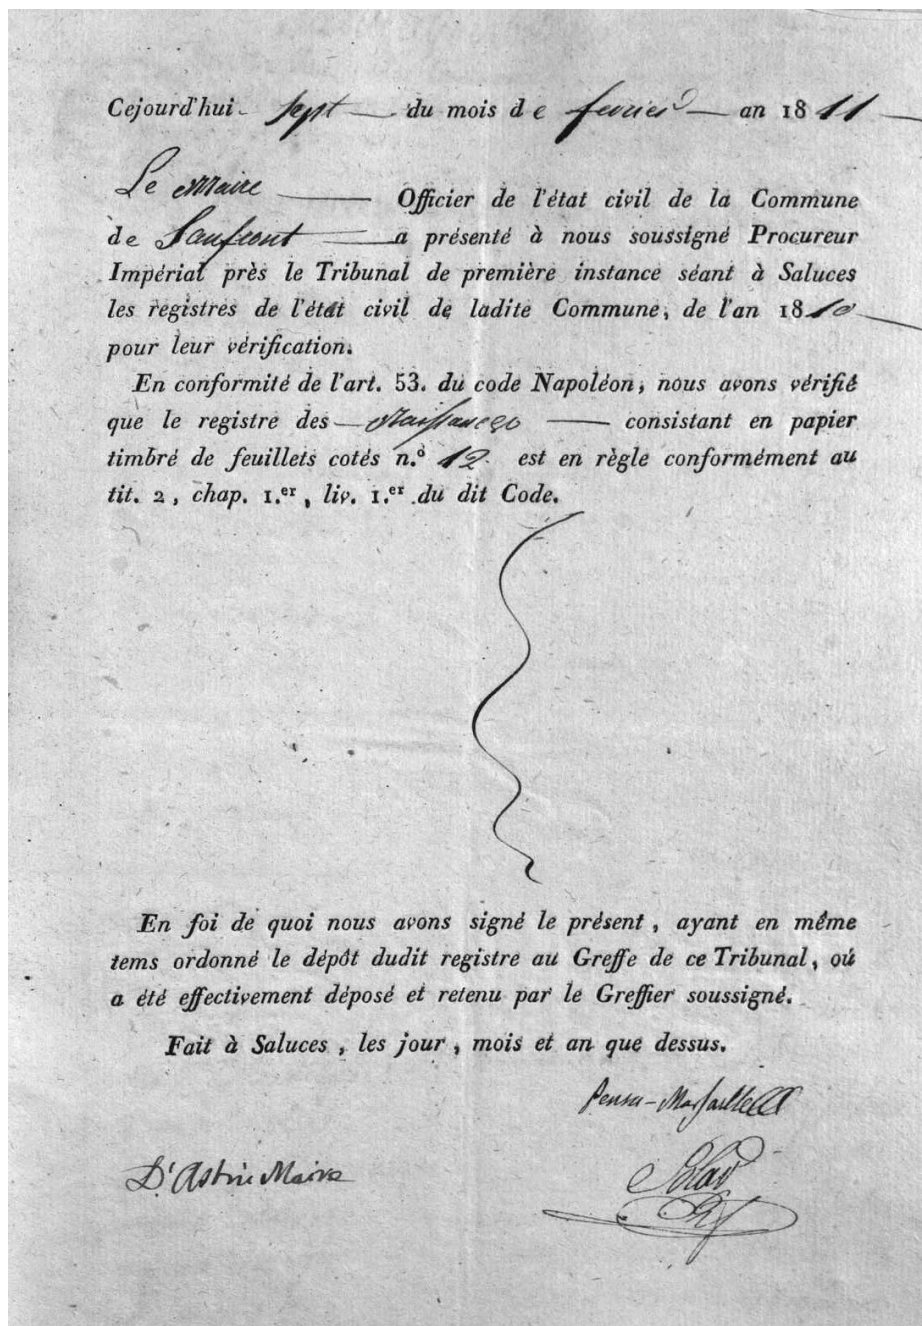 Cejourd'hui sept du mois de fevrier an 1811
Le Maire Officier de l'état civil de la Commune
de Sanfront a présenté à nous soussigné Procureur
Impérial près le Tribunal de première instance séant à Saluces
les registres de l'état civil de ladite Commune, de l'an 1810
pour leur vérification.
En conformité de l'art. 53. du code Napoléon, nous avons vérifié
que le registre des Naissances consistant en papier
timbré de feuillets cotés n.º 12 est en règle conformément au
tit. 2, chap. 1.er, liv. 1.er du dit Code.
En foi de quoi nous avons signé le présent, ayant en même
tems ordonné le dépôt dudit registre au Greffe de ce Tribunal, où
a été effectivement déposé et retenu par le Greffier soussigné.
Fait à Saluces, les jour, mois et an que dessus.
D'Astrie Maire